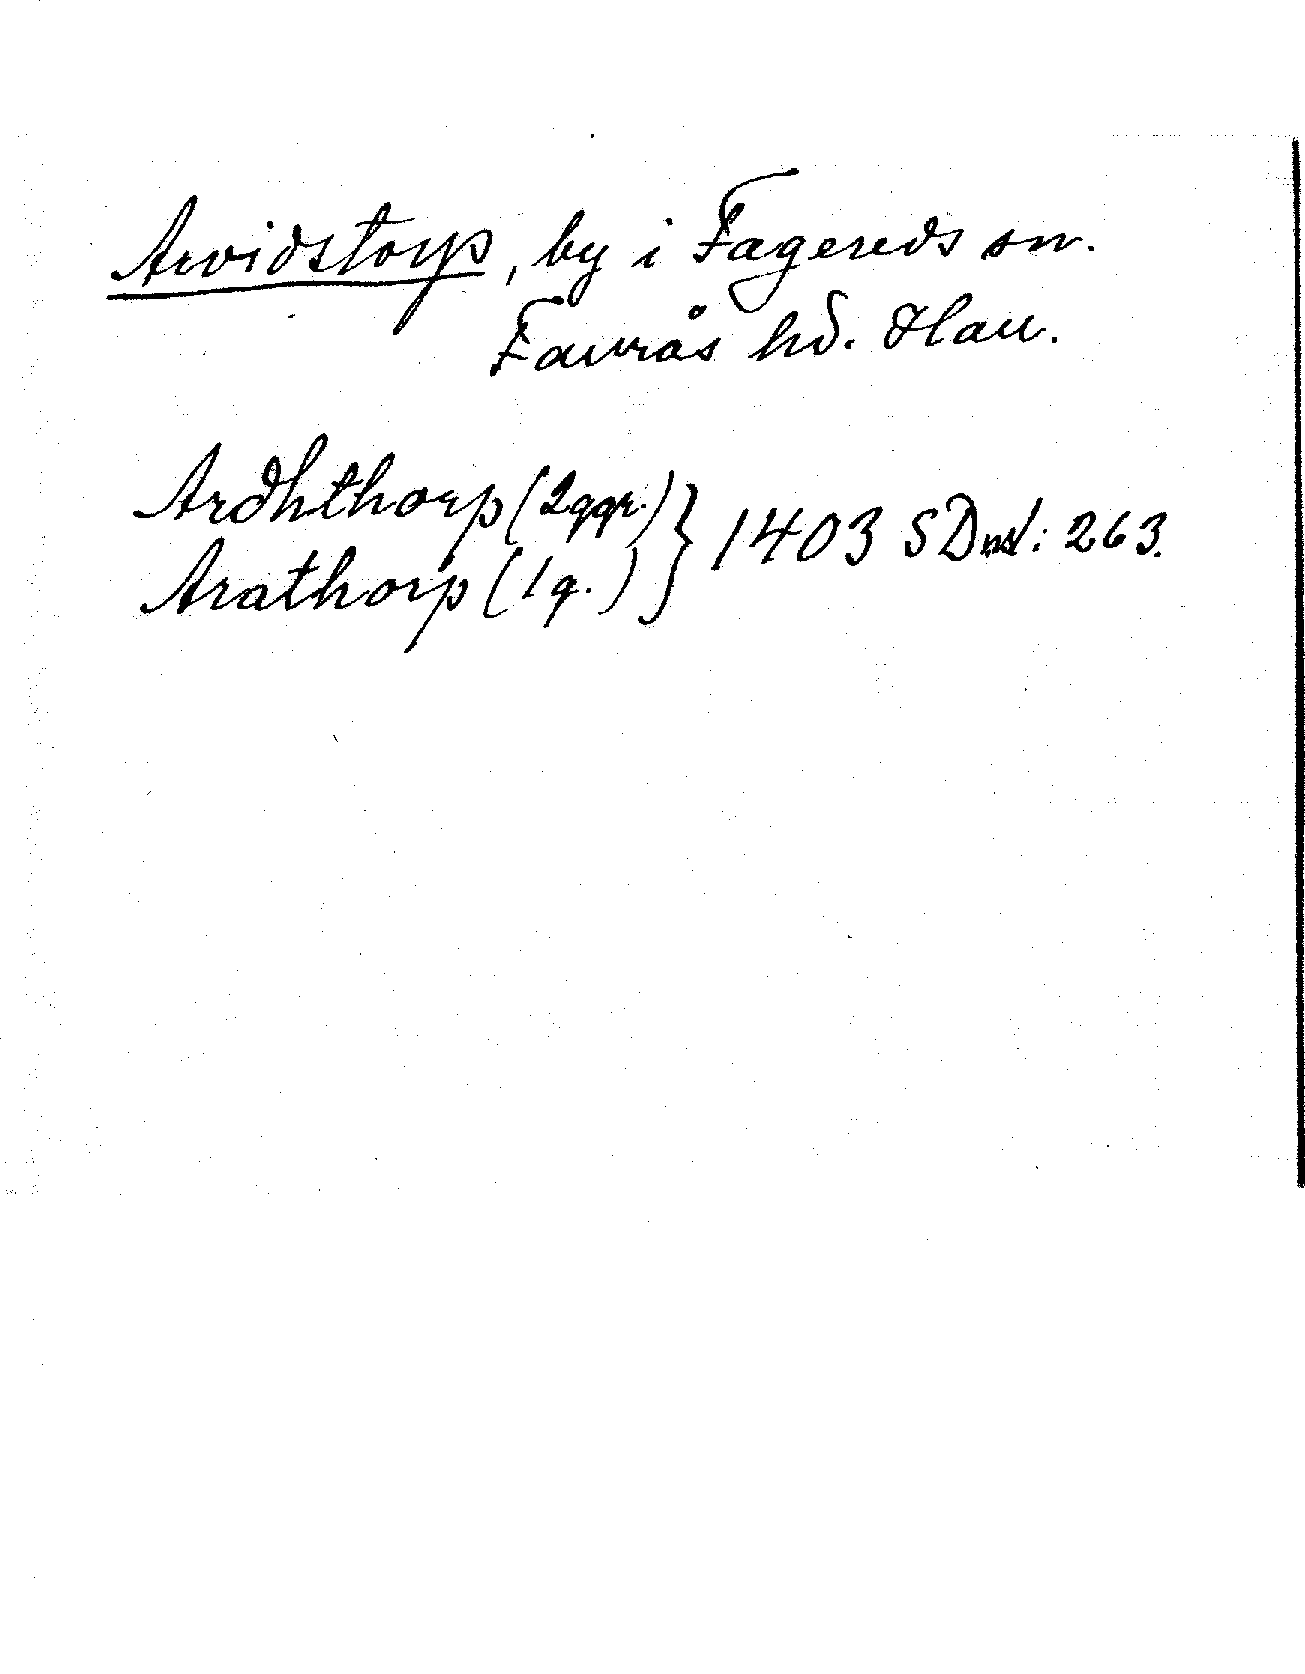 Arvidstorp, by i Fagereds sn.
Faurås hd. Hall.
Ardhthorp (2 ggr.)
Arathorp (1 g.) } 1403 SD ns 1: 263.